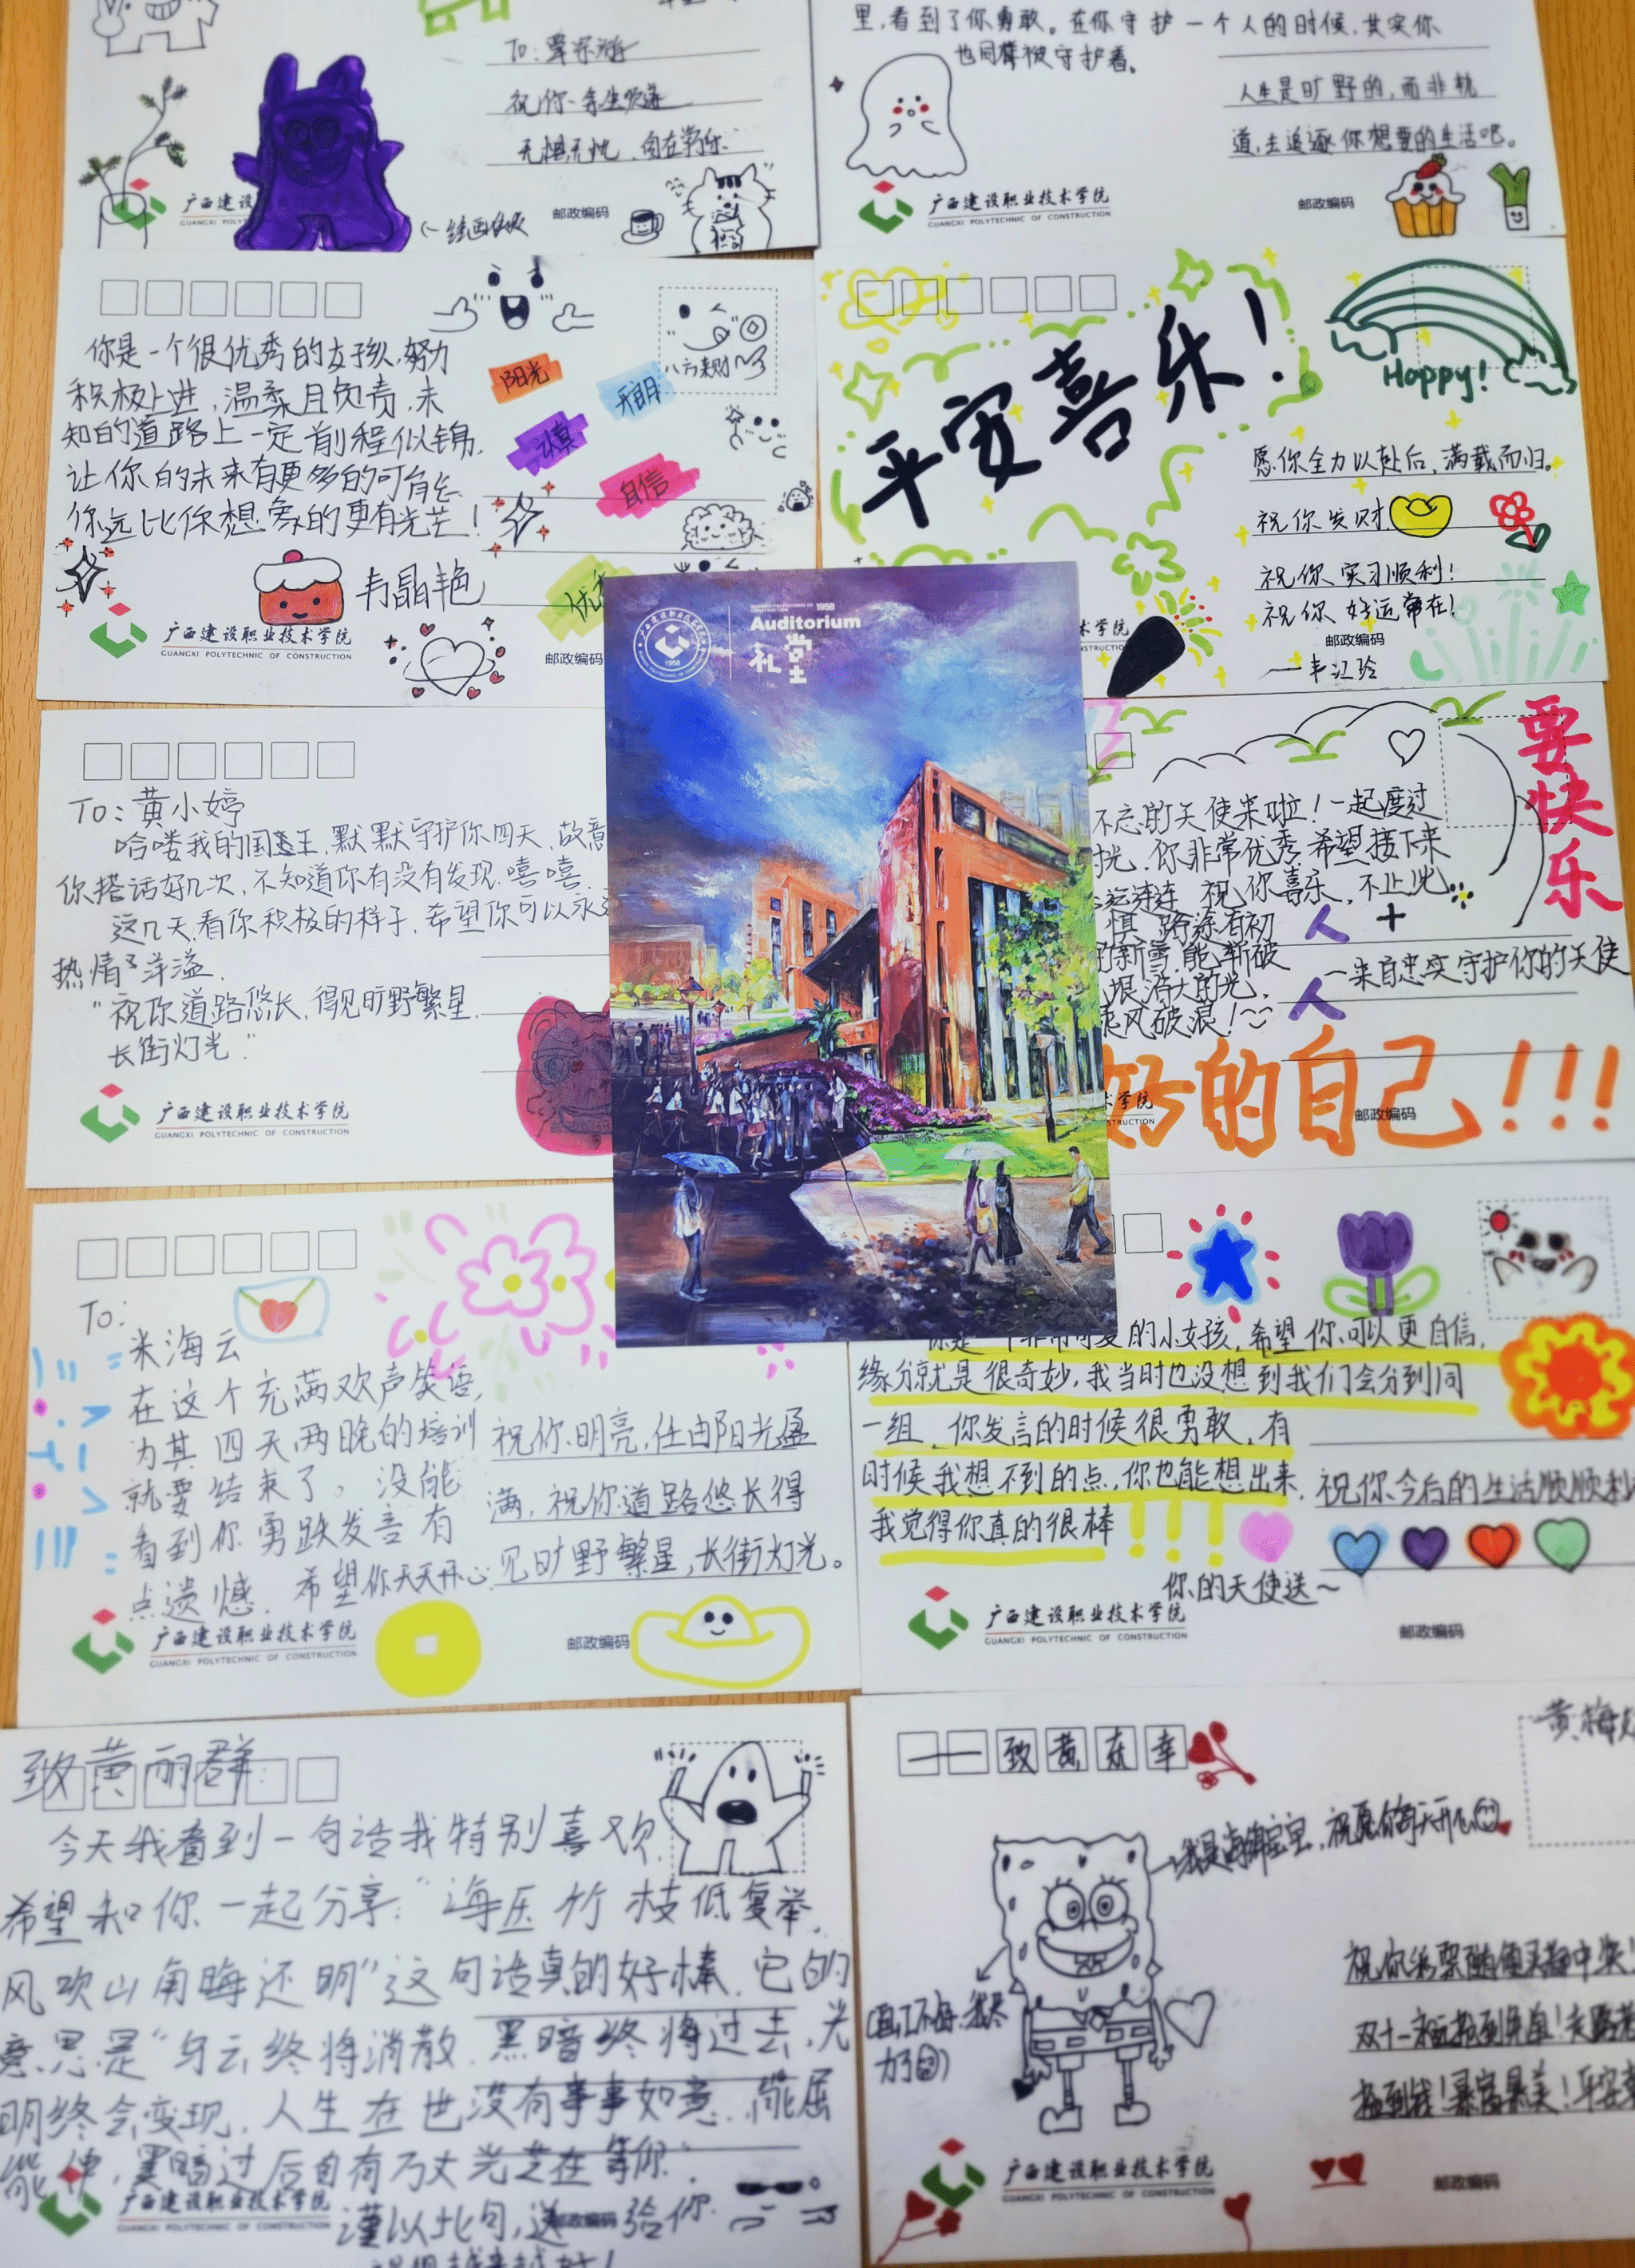 To:
祝你一生顺遂
广西建设职业技术学院
GUANGXI POLYTECHNIC OF CONSTRUCTION
邮政编码
里,看到了你勇敢。在你守护一个人的时候,其实你
也同样被守护着。
人生是旷野的,而非轨
道,去追逐你想要的生活吧。
广西建设职业技术学院
GUANGXI POLYTECHNIC OF CONSTRUCTION
邮政编码
你是一个很优秀的女孩,努力
积极上进,温柔且负责,未
知的道路上一定前程似锦,
让你的未来有更多的可能
你远比你想象的更有光芒!
阳光
开朗
认真
自信
八方来财
韦晶艳
广西建设职业技术学院
GUANGXI POLYTECHNIC OF CONSTRUCTION
邮政编码
平安喜乐!
Happy!
愿你全力以赴后,满载而归。
祝你发财,
祝你实习顺利!
祝你好运常在!
邮政编码
一韦江玲
Auditorium
礼堂
1958
To:黄小婷
哈喽我的国王,默默守护你四天,故意
你搭话好几次,不知道你有没有发现.嘻嘻.
这几天看你积极的样子,希望你可以永
热情洋溢.
"祝你道路悠长,得见旷野繁星,
长街灯光."
广西建设职业技术学院
GUANGXI POLYTECHNIC OF CONSTRUCTION
要快乐
不忘的天使来啦!一起度过
扰.你非常优秀.希望接下来
连连 祝你喜乐,不止此
路途有初
的新雪,能斩破
浩大的光,
乘风破浪!
一来自忠实守护你的天使
好的自己!!!
邮政编码
To:
米海云
在这个充满欢声笑语,
为其四天两晚的培训
就要结束了,没能
看到你勇跃发言有
点遗憾.希望你天天开心
祝你明亮,任由阳光盈
满,祝你道路悠长得
见旷野繁星,长街灯光。
广西建设职业技术学院
GUANGXI POLYTECHNIC OF CONSTRUCTION
邮政编码
你是一个非常可爱的小女孩,希望你可以更自信,
缘分就是很奇妙,我当时也没想到我们会分到同
一组,你发言的时候很勇敢,有
时候我想不到的点,你也能想出来,
我觉得你真的很棒!!!
祝你今后的生活顺顺利
你的天使送~
广西建设职业技术学院
GUANGXI POLYTECHNIC OF CONSTRUCTION
邮政编码
致黄丽群:
今天我看到一句话我特别喜欢,
希望和你一起分享:"海压竹枝低复举,
风吹山角晦还明"这句话真的好棒.它的
意思是"乌云终将消散,黑暗终将过去,光
明终会变现,人生在世没有事事如意,能屈
能伸,黑暗过后自有万丈光芒在等你".
谨以此句,送给你.
广西建设职业技术学院
邮政编码
一一致黄
我是海绵宝宝,祝愿你每天开心
广西建设职业技术学院
GUANGXI POLYTECHNIC OF CONSTRUCTION
邮政编码